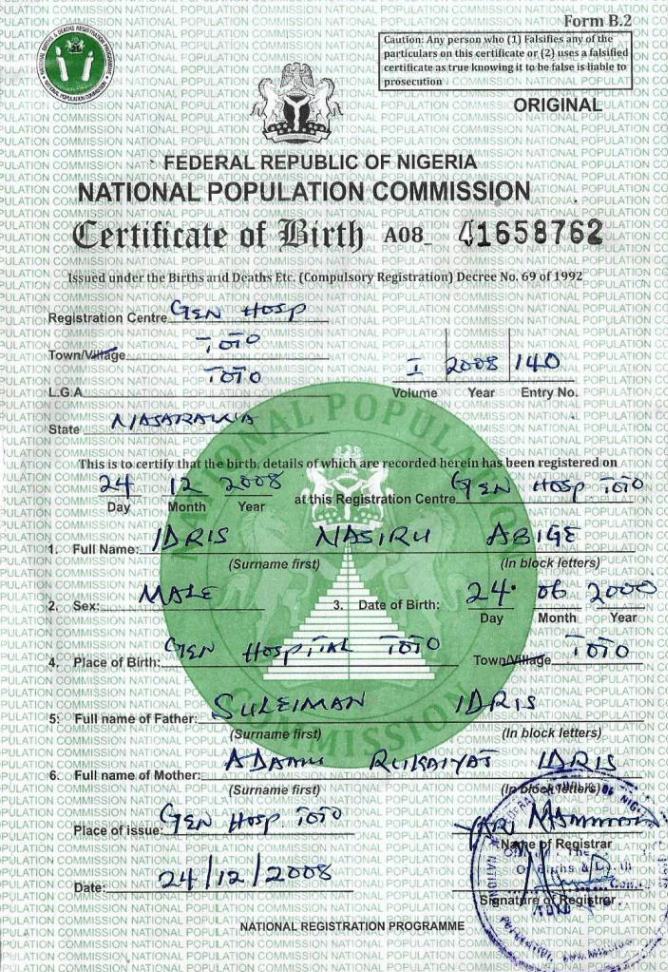 Form B.2
Caution: Any person who (1) Falsifies any of the
particulars on this certificate or (2) uses a falsified
certificate as true knowing it to be false is liable to
prosecution
ORIGINAL
FEDERAL REPUBLIC OF NIGERIA
NATIONAL POPULATION COMMISSION
Certificate of Birth A08_ 41658762
Issued under the Births and Deaths Etc. (Compulsory Registration) Decree No. 69 of 1992
Registration Centre GEN HOSP
Town/Village TOTO
L.G.A TOTO
I 2008 140
Volume Year Entry No.
State NASARAWA
This is to certify that the birth, details of which are recorded herein has been registered on
24 12 2008 at this Registration Centre GEN HOSP TOTO
Day Month Year
1. Full Name: IDRIS NASIRU ABIGE
(Surname first) (In block letters)
2. Sex: MALE 3. Date of Birth: 24 06 2000
Day Month Year
4. Place of Birth: GEN HOSPITAL TOTO Town/Village TOTO
5: Full name of Father: SULEIMAN IDRIS
(Surname first) (In block letters)
6. Full name of Mother: ADAMU RUKAIYAT IDRIS
(Surname first) (In block letters)
Place of issue: GEN HOSP TOTO
Name of Registrar
Date: 24/12/2008
Signature of Registrar
NATIONAL REGISTRATION PROGRAMME